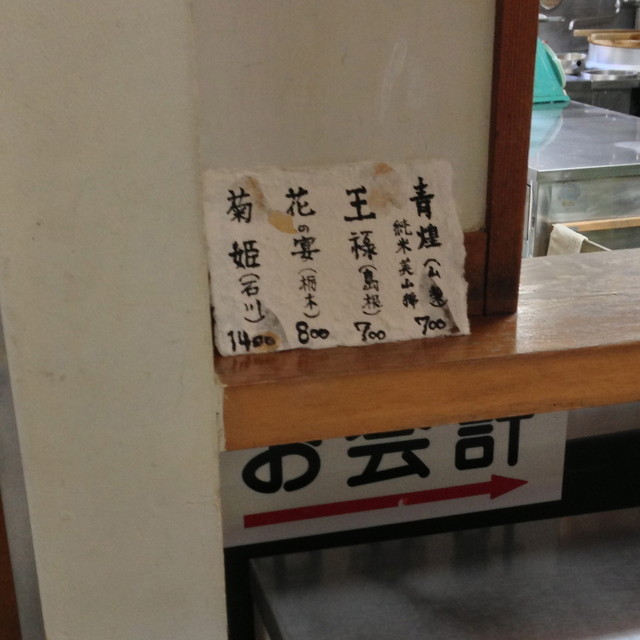 青煌(山梨)
純米美山錦
700
王祿(島根)
700
花の宴(栃木)
800
菊姫(石川)
1400
お会計